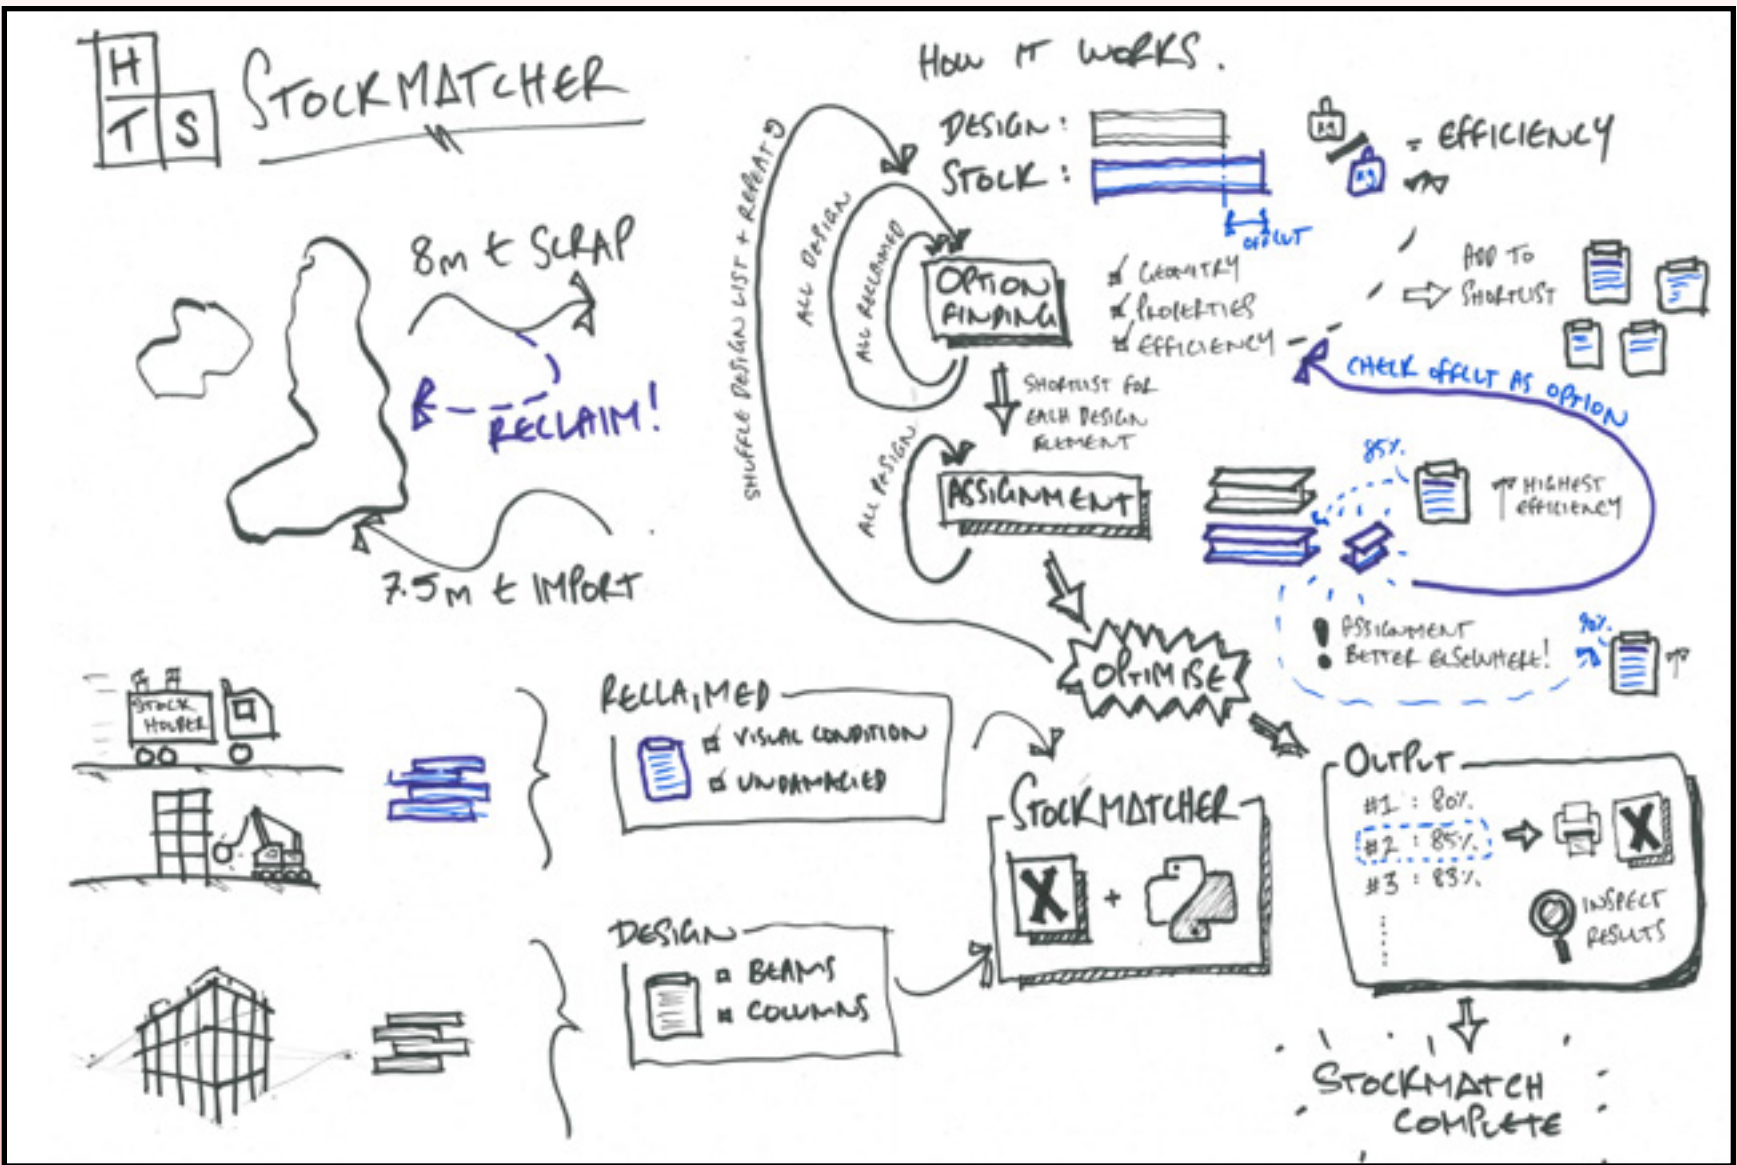 H
T S
STOCKMATCHER
8m t SCRAP
RECLAIM!
7.5m t IMPORT
STOCK
HOLDER
RECLAIMED
VISUAL CONDITION
UNDAMAGED
DESIGN
BEAMS
COLUMNS
HOW IT WORKS.
DESIGN:
STOCK:
OFFCUT
kg
kg
= EFFICIENCY
SHUFFLE DESIGN LIST + REPEAT
ALL DESIGN
ALL RECLAIMED
OPTION
FINDING
GEOMETRY
PROPERTIES
EFFICIENCY
ADD TO
SHORTLIST
SHORTLIST FOR
EACH DESIGN
ELEMENT
CHECK OFFCUT AS OPTION
ALL DESIGN
ASSIGNMENT
85%
HIGHEST
EFFICIENCY
! ASSIGNMENT
BETTER ELSEWHERE!
90%
OPTIMISE
STOCKMATCHER
X +
OUTPUT
#1 : 80%
#2 : 85%
#3 : 83%
X
INSPECT
RESULTS
STOCKMATCH
COMPLETE